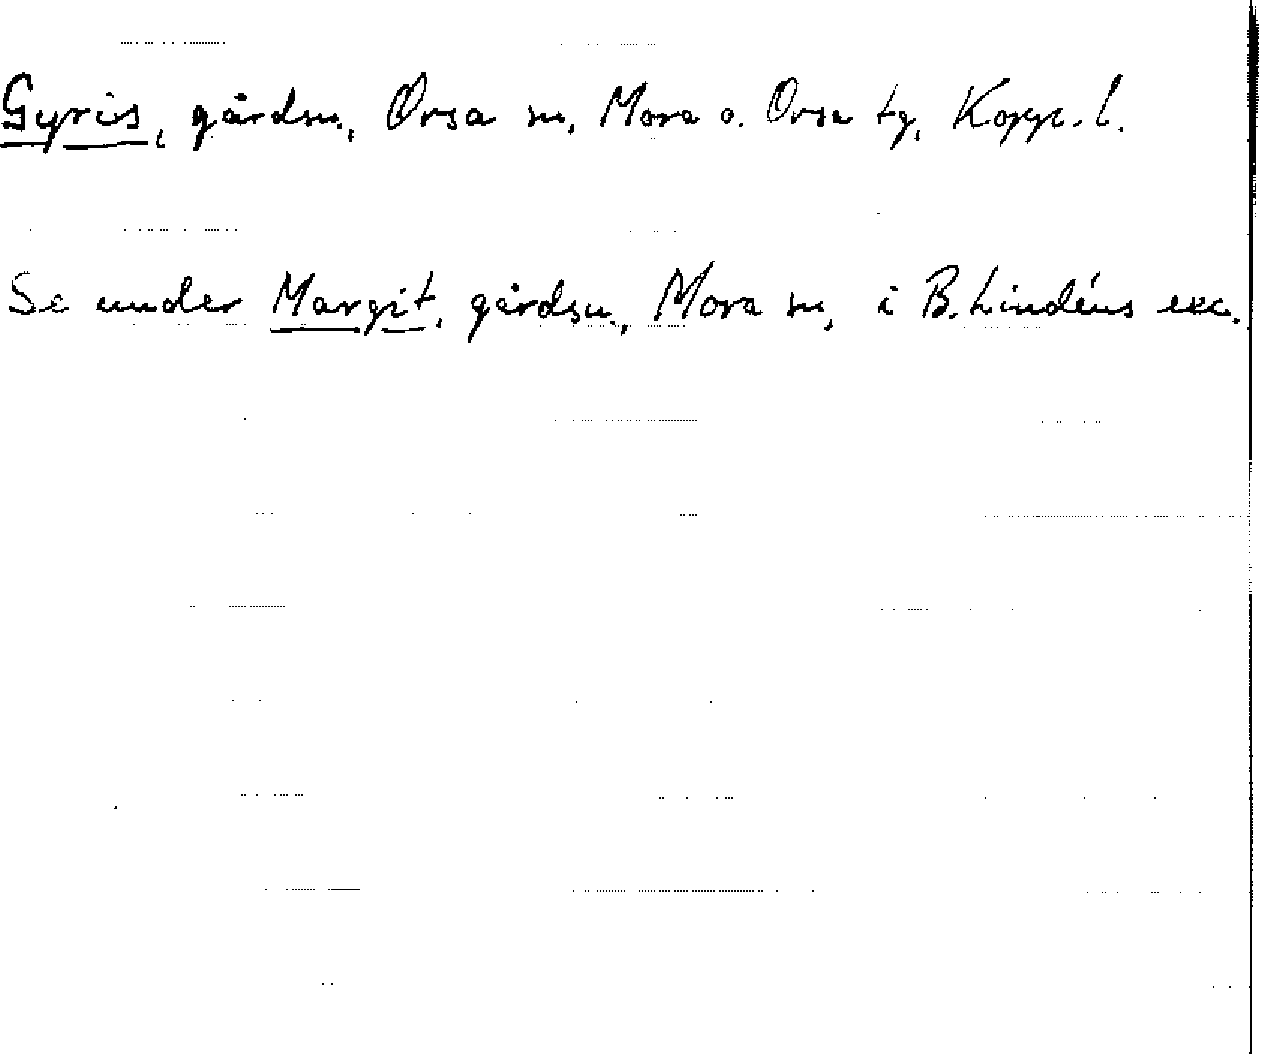 Gyris, gårdsn., Orsa sn, Mora o. Orsa tg, Kopp. l.
Se under Margit, gårdsn., Mora sn, i B. Lindéns exc.